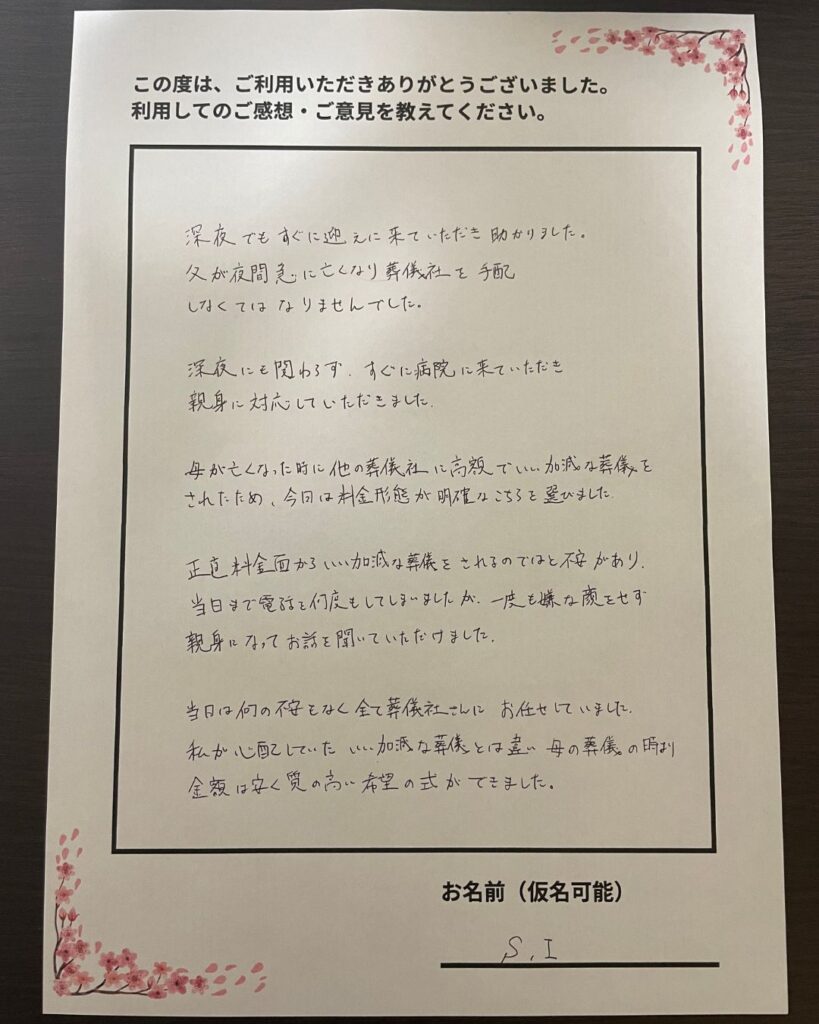 この度は、ご利用いただきありがとうございました。
利用してのご感想・ご意見を教えてください。
深夜でもすぐに迎えに来ていただき助かりました。
父が夜間急に亡くなり葬儀社を手配
しなくてはなりませんでした。
深夜にも関わらず、すぐに病院に来ていただき
親身に対応していただきました。
母が亡くなった時に他の葬儀社に高額でいい加減な葬儀を
されたため、今回は料金形態が明確なこちらを選びました。
正直料金面からいい加減な葬儀をされるのではと不安があり、
当日まで電話を何度もしてしまいましたが、一度も嫌な顔をせず
親身になってお話を聞いていただけました。
当日は何の不安もなく全て葬儀社さんにお任せしていました。
私が心配していたいい加減な葬儀とは違い母の葬儀の時より
金額は安く質の高い希望の式ができました。
お名前（仮名可能）
S.I